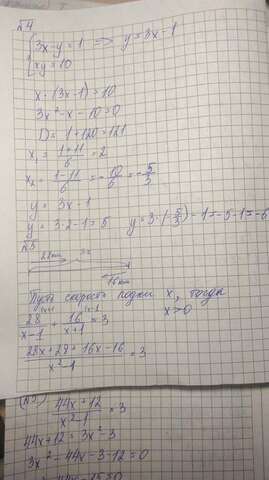 №4
{3x-y=1 => y=3x-1
{xy=10
x·(3x-1)=10
3x²-x-10=0
D = 1+120=121
x₁ = (1+11)/6 = 2
x₂ = (1-11)/6 = -10/6 = -5/3
y = 3x-1
y = 3·2-1=5 y=3·(-5/3)-1=-5-1=-6
№5
28км
16км
Пусть скорость лодки x, тогда
x>0
28/(x-1) + 16/(x+1) = 3
(28x+28+16x-16)/(x²-1) = 3
(44x+12)/(x²-1) = 3
44x+12=3x²-3
3x²-44x-3-12=0